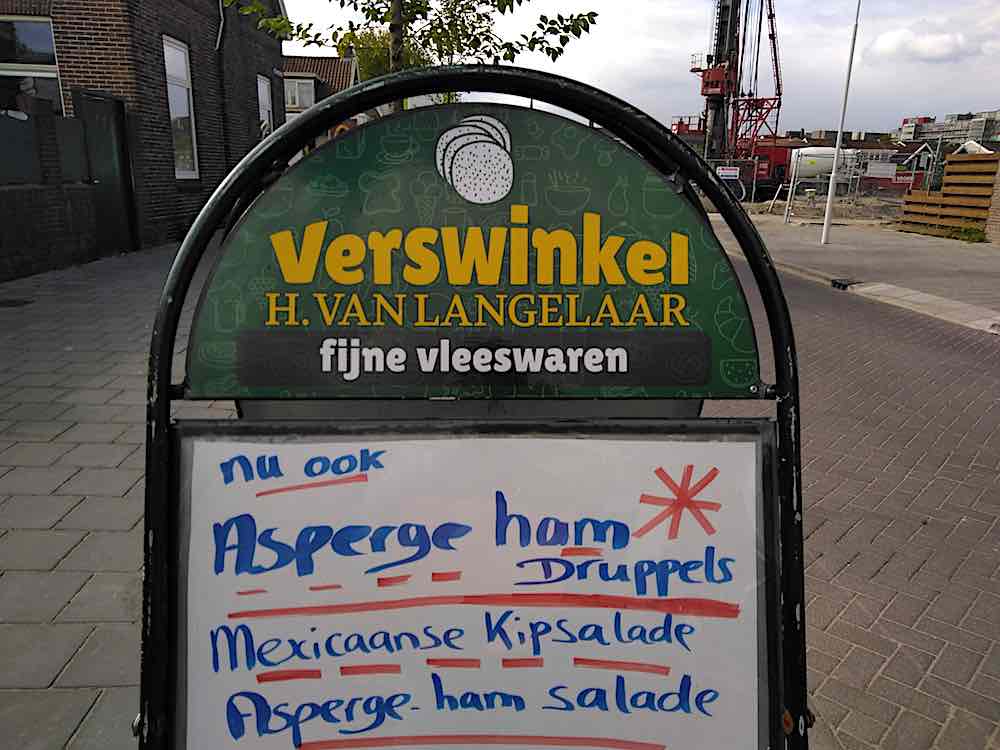 Verswinkel
H. VAN LANGELAAR
fijne vleeswaren
nu ook
Asperge ham
Druppels
Mexicaanse Kipsalade
Asperge-ham salade